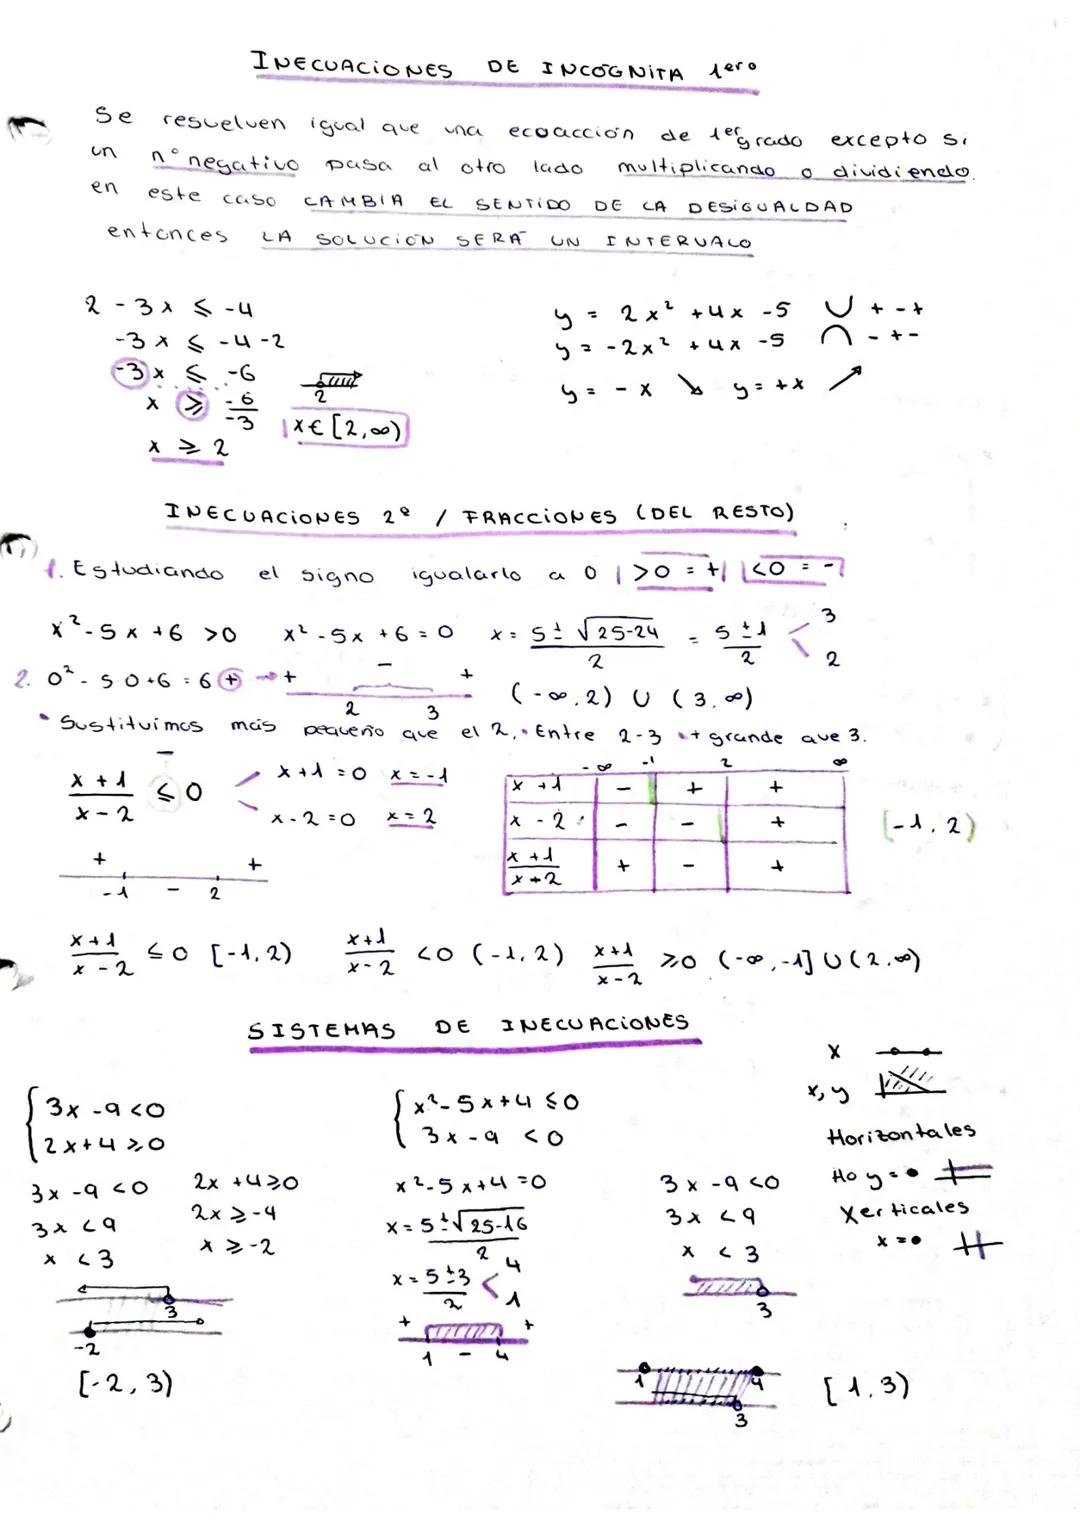 INECUACIONES DE INCÓGNITA 1ero
Se resuelven igual que una ecoacción de 1er grado excepto si
un nº negativo pasa al otro lado multiplicando o dividiendo.
en este caso CAMBIA EL SENTIDO DE LA DESIGUALDAD
entonces LA SOLUCIÓN SERÁ UN INTERVALO
2 - 3x ≤ -4
-3x ≤ -4 -2
-3x ≤ -6
x ≥ -6/-3
x ≥ 2
2
x ∈ [2, ∞)
y = 2x² + 4x - 5 ∪ + - +
y = -2x² + 4x - 5 ∩ - + -
y = -x ↘ y = +x ↗
INECUACIONES 2º / FRACCIONES (DEL RESTO)
1. Estudiando el signo igualarlo a 0 | >0 = + | <0 = -
x² - 5x + 6 > 0 x² - 5x + 6 = 0 x = 5 ± √25-24 / 2 = 5 ± 1 / 2 < 3 2
2. 0² - 5·0 + 6 = 6 + → + - +
2 3
(-∞, 2) ∪ (3, ∞)
• Sustituímos más pequeño que el 2, • Entre 2-3 • + grande que 3.
x + 1 / x - 2 ≤ 0
-
x + 1 = 0 x = -1
x - 2 = 0 x = 2
+ -1 - 2 +
-∞ -1 2 ∞
x + 1 - + +
x - 2 - - +
x + 1 / x + 2 + - +
[-1, 2)
x+1 / x-2 ≤ 0 [-1, 2) x+1 / x-2 < 0 (-1, 2) x+1 / x-2 ≥ 0 (-∞, -1] ∪ (2, ∞)
SISTEMAS DE INECUACIONES
{ 3x - 9 < 0
2x + 4 ≥ 0
3x - 9 < 0 2x + 4 ≥ 0
3x < 9 2x ≥ -4
x < 3 x ≥ -2
3
-2
[-2, 3)
{ x² - 5x + 4 ≤ 0
3x - 9 < 0
x² - 5x + 4 = 0
x = 5 ± √25-16 / 2
x = 5 ± 3 / 2 < 4 1
+ +
1 - 4
3x - 9 < 0
3x < 9
x < 3
3
1 4
3
[1, 3)
x
x, y
Horizontales
Ho y = •
Xerticales
x = •